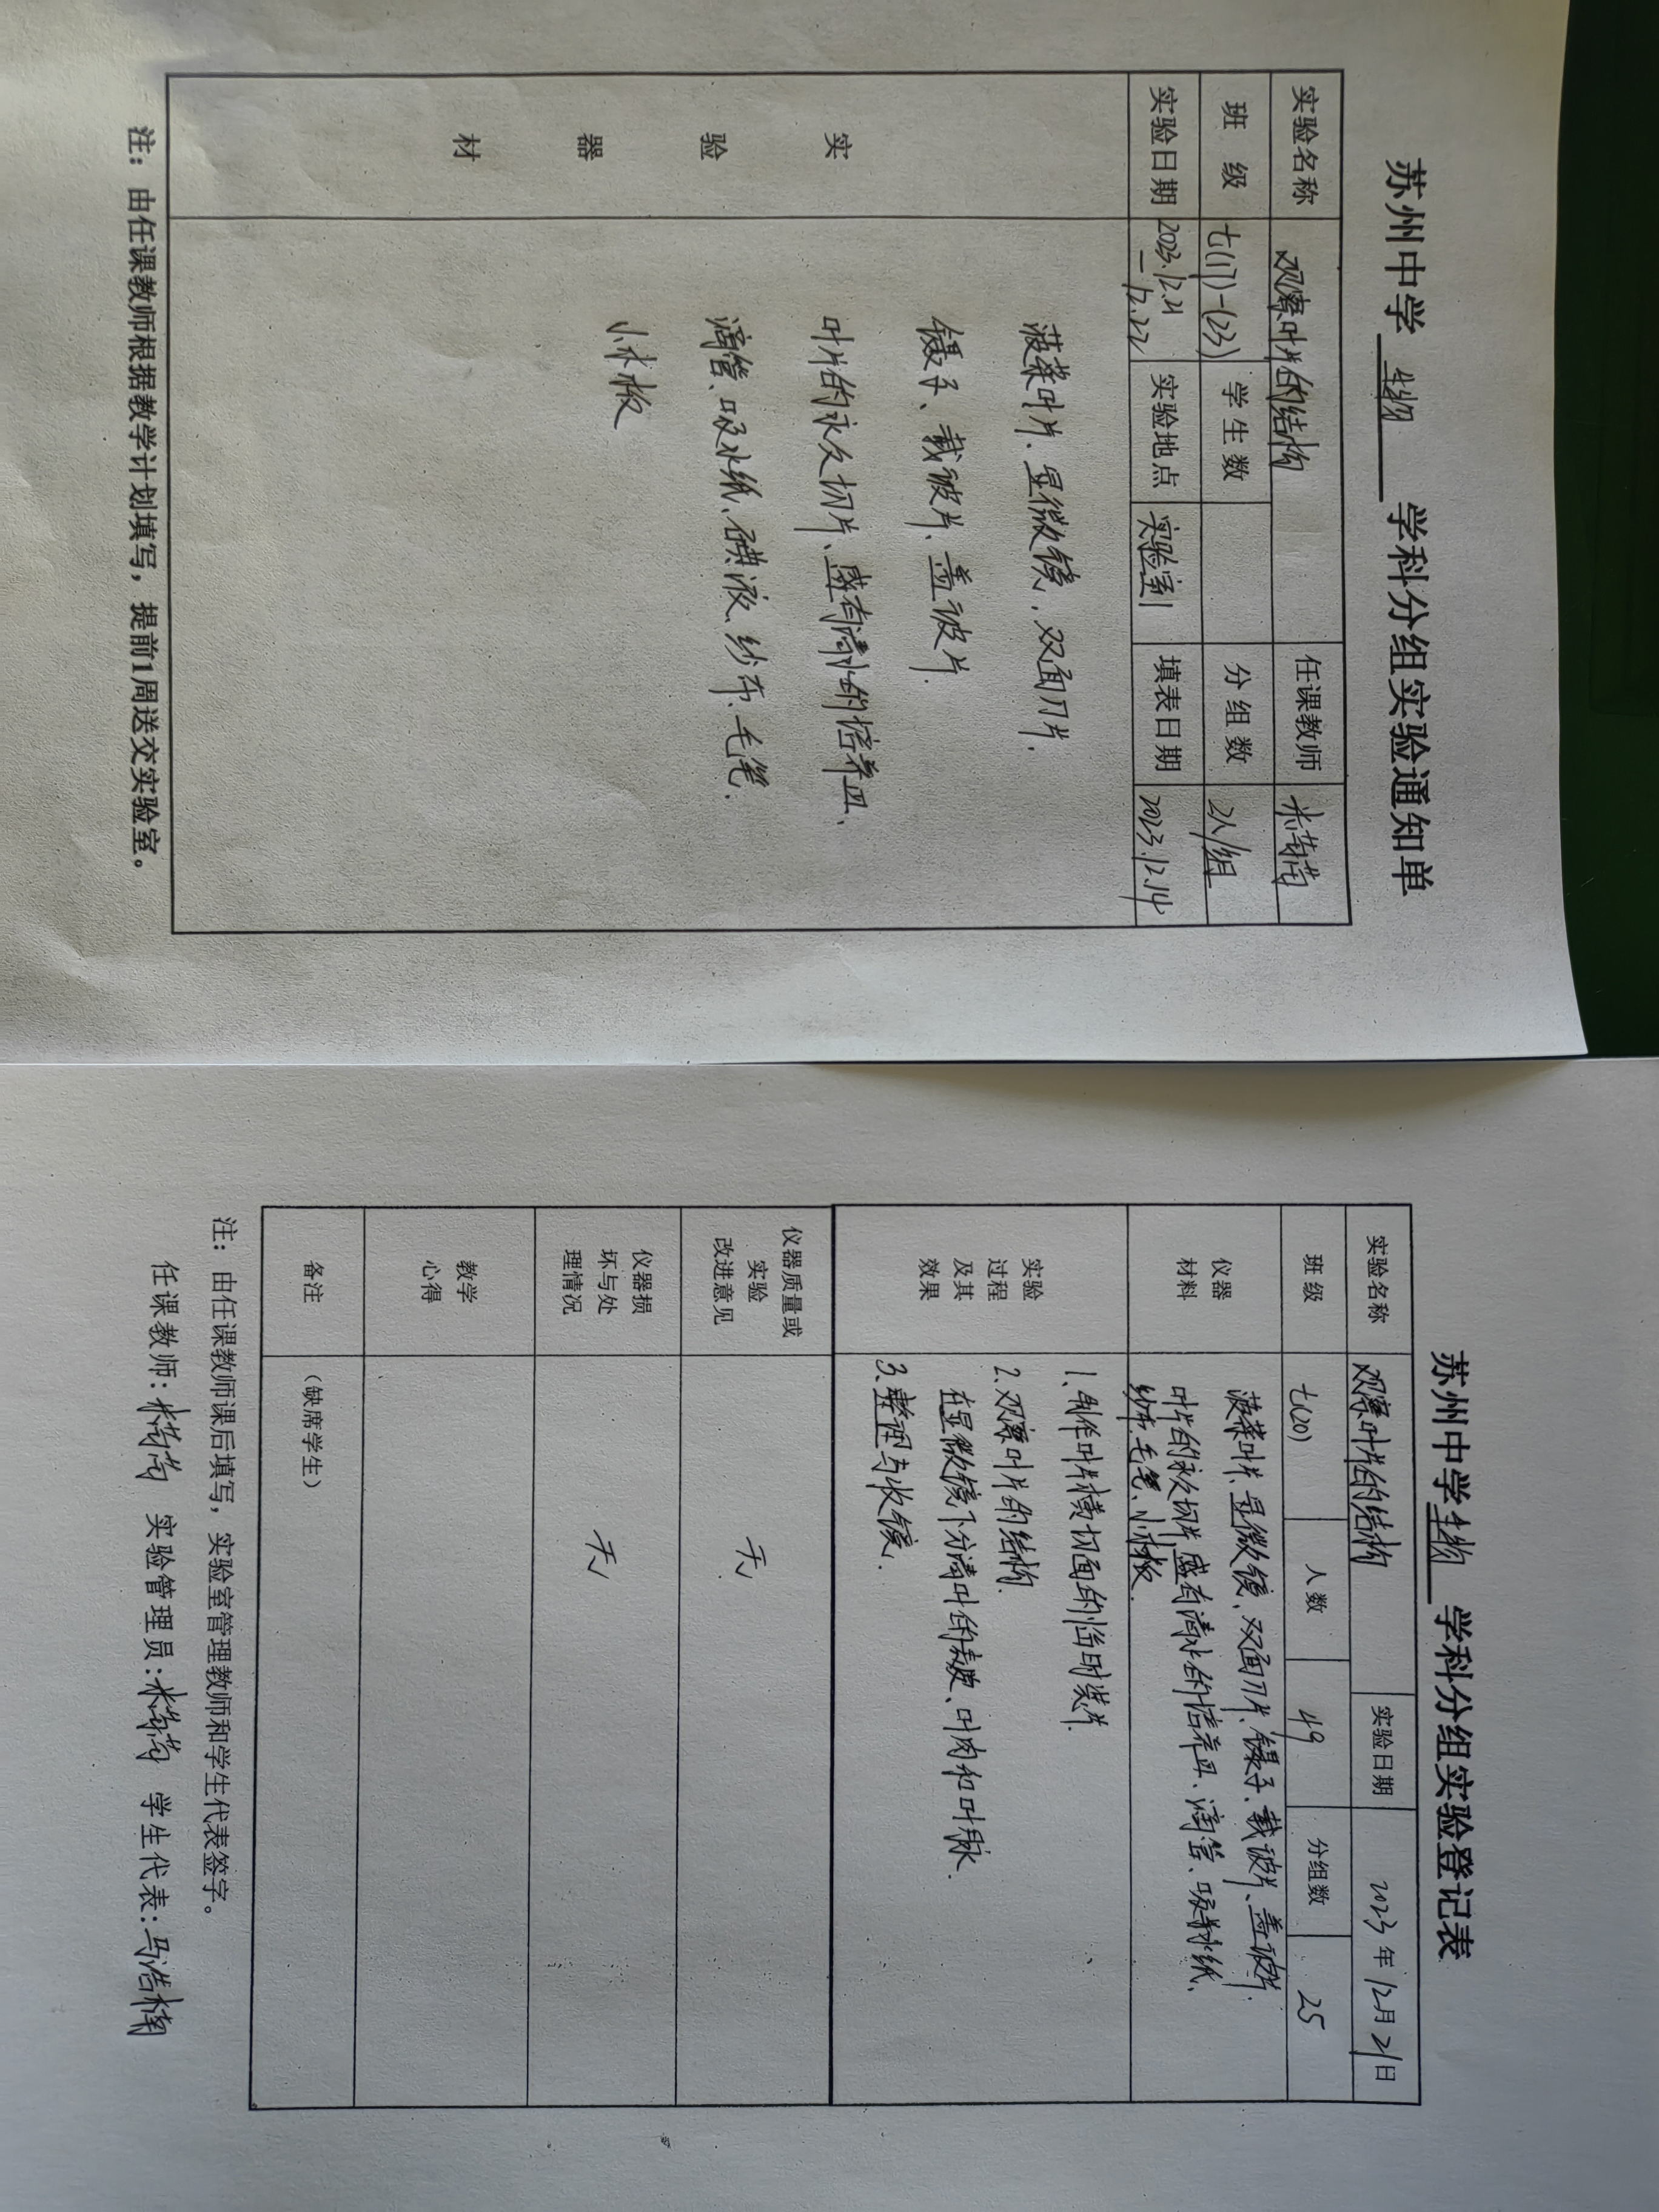 苏州中学 生物 学科分组实验通知单
实验名称 观察叶片的结构 任课教师
班 级 七(17)-(23) 学生数 分组数 2人/组
实验日期 2023.12.21-12.22 实验地点 实验室1 填表日期 2023.12.14
实验器材
菠菜叶片、显微镜、双面刀片、
镊子、载玻片、盖玻片、
叶片的永久切片、盛有清水的培养皿、
滴管、吸水纸、碘液、纱布、毛笔、
小木板
注：由任课教师根据教学计划填写，提前1周送交实验室。
苏州中学 生物 学科分组实验登记表
实验名称 观察叶片的结构 实验日期 2023年12月21日
班级 七(20) 人数 49 分组数 25
仪器材料
菠菜叶片、显微镜、双面刀片、镊子、载玻片、盖玻片、
叶片的永久切片、盛有清水的培养皿、滴管、吸水纸、
纱布、毛笔、小木板.
实验过程及其效果
1.制作叶片横切面的临时装片.
2.观察叶片的结构.
在显微镜下分清叶的表皮、叶肉和叶脉.
3.整理与收镜.
仪器质量或实验改进意见 无
仪器损坏与处理情况 无
教学心得
备注 （缺席学生）
注：由任课教师课后填写，实验室管理教师和学生代表签字。
任课教师: 实验管理员: 学生代表:马浩楠